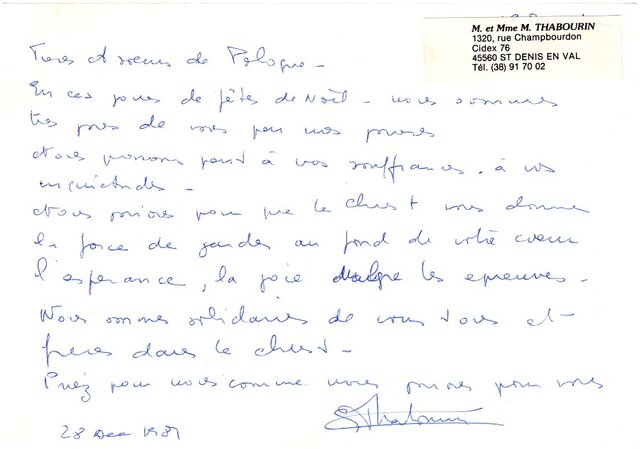 M. et Mme M. THABOURIN
1320, rue Champbourdon
Cidex 76
45560 ST DENIS EN VAL
Tél. (38) 91 70 02
Frères et soeurs de Pologne -
En ces jours de fêtes de Noël - nous sommes
très près de vous par nos prières
Nous pensons particulièrement à vos souffrances, à vos
inquiétudes -
Nous prions pour que le Christ vous donne
la force de garder au fond de votre coeur
l'espérance, la joie malgré les épreuves -
Nous sommes solidaires de vous tous et
frères dans le christ -
Priez pour nous comme nous prions pour vous
Thabourin
28 Dec 1981